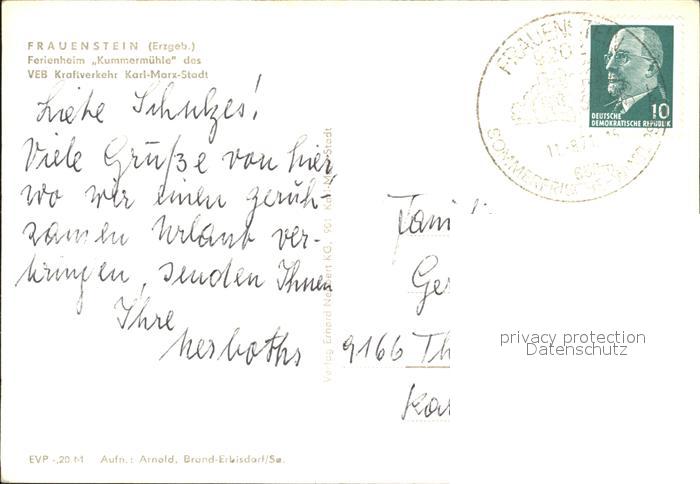 FRAUENSTEIN (Erzgeb.)
Ferienheim „Kummermühle" des
VEB Kraftverkehr Karl-Marx-Stadt
Liebe Schulzes!
Viele Grüße von hier,
wo wir einen geruh-
samen Urlaub ver-
bringen, senden Ihnen
Ihre
Merboths
EVP -,20 M Aufn.: Arnold, Brand-Erbisdorf/Sa.
Verlag Erhard Neubert KG, 901 Karl-Marx-Stadt
FRAUENSTEIN
9201
SOMMERFRISCHE
10
DEUTSCHE
DEMOKRATISCHE REPUBLIK
Fami
Ge
9166 Th
Ka
privacy protection
Datenschutz